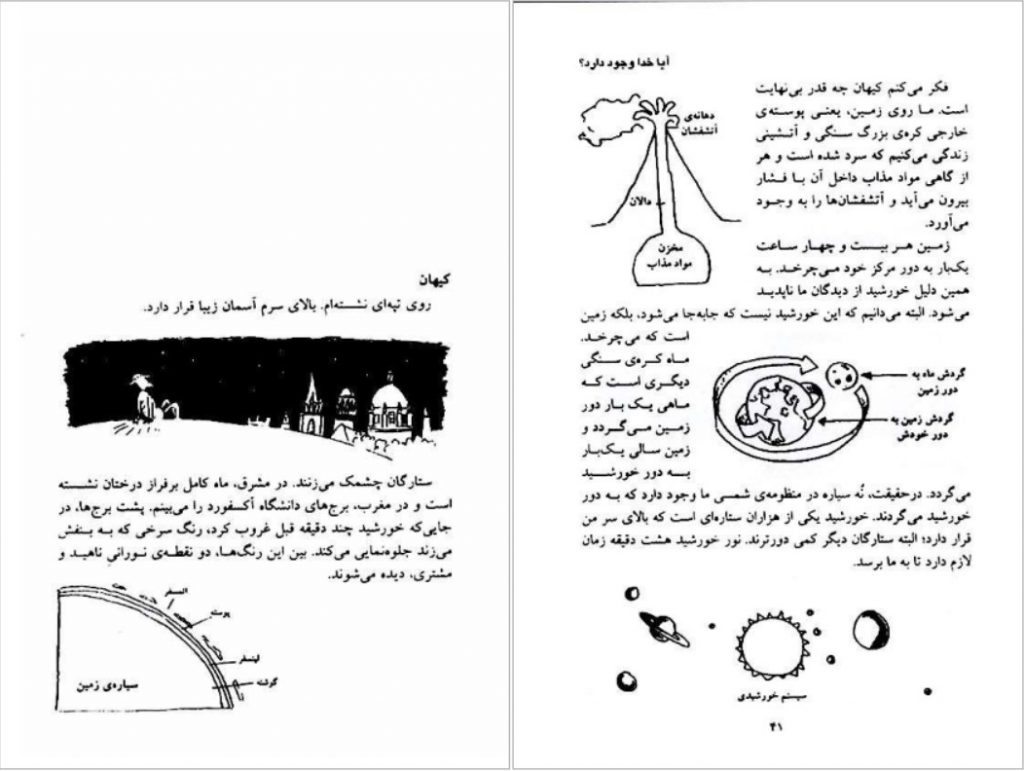 کیهان
روی تپه‌ای نشسته‌ام. بالای سرم آسمان زیبا قرار دارد.
ستارگان چشمک می‌زنند. در مشرق، ماه کامل برفراز درختان نشسته
است و در مغرب، برج‌های دانشگاه آکسفورد را می‌بینم. پشت برج‌ها، در
جایی‌که خورشید چند دقیقه قبل غروب کرد، رنگ سرخی که به بنفش
می‌زند جلوه‌نمایی می‌کند. بین این رنگ‌ها، دو نقطه‌ی نورانی ناهید و
مشتری، دیده می‌شوند.
پوسته
گوشته
سیاره‌ی زمین
آیا خدا وجود دارد؟
فکر می‌کنم کیهان چه قدر بی‌نهایت
است. ما روی زمین، یعنی پوسته‌ی
خارجی کره‌ی بزرگ سنگی و آتشینی
زندگی می‌کنیم که سرد شده است و هر
از گاهی مواد مذاب داخل آن با فشار
بیرون می‌آید و آتشفشان‌ها را به وجود
می‌آورد.
دهانه‌ی
آتشفشان
دالان
مخزن
مواد مذاب
زمین هر بیست و چهار ساعت
یک‌بار به دور مرکز خود می‌چرخد. به
همین دلیل خورشید از دیدگان ما ناپدید
می‌شود. البته می‌دانیم که این خورشید نیست که جابه‌جا می‌شود، بلکه زمین
است که می‌چرخد.
ماه کره‌ی سنگی
دیگری است که
ماهی یک بار دور
زمین می‌گردد و
زمین سالی یک‌بار
به دور خورشید
گردش ماه به
دور زمین
گردش زمین به
دور خودش
می‌گردد. درحقیقت، نُه سیاره در منظومه‌ی شمسی ما وجود دارد که به دور
خورشید می‌گردند. خورشید یکی از هزاران ستاره‌ای است که بالای سر من
قرار دارد؛ البته ستارگان دیگر کمی دورترند. نور خورشید هشت دقیقه زمان
لازم دارد تا به ما برسد.
سیستم خورشیدی
۴۱